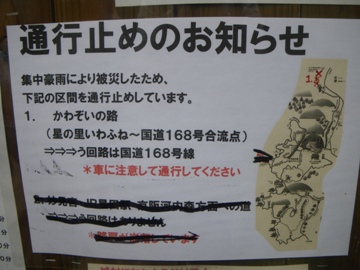 通行止めのお知らせ
集中豪雨により被災したため、
下記の区間を通行止めしています。
1. かわぞいの路
(星の里いわふね~国道168号合流点)
⇒⇒⇒う回路は国道168号線
*車に注意して通行してください
⇒⇒⇒う回路はありません